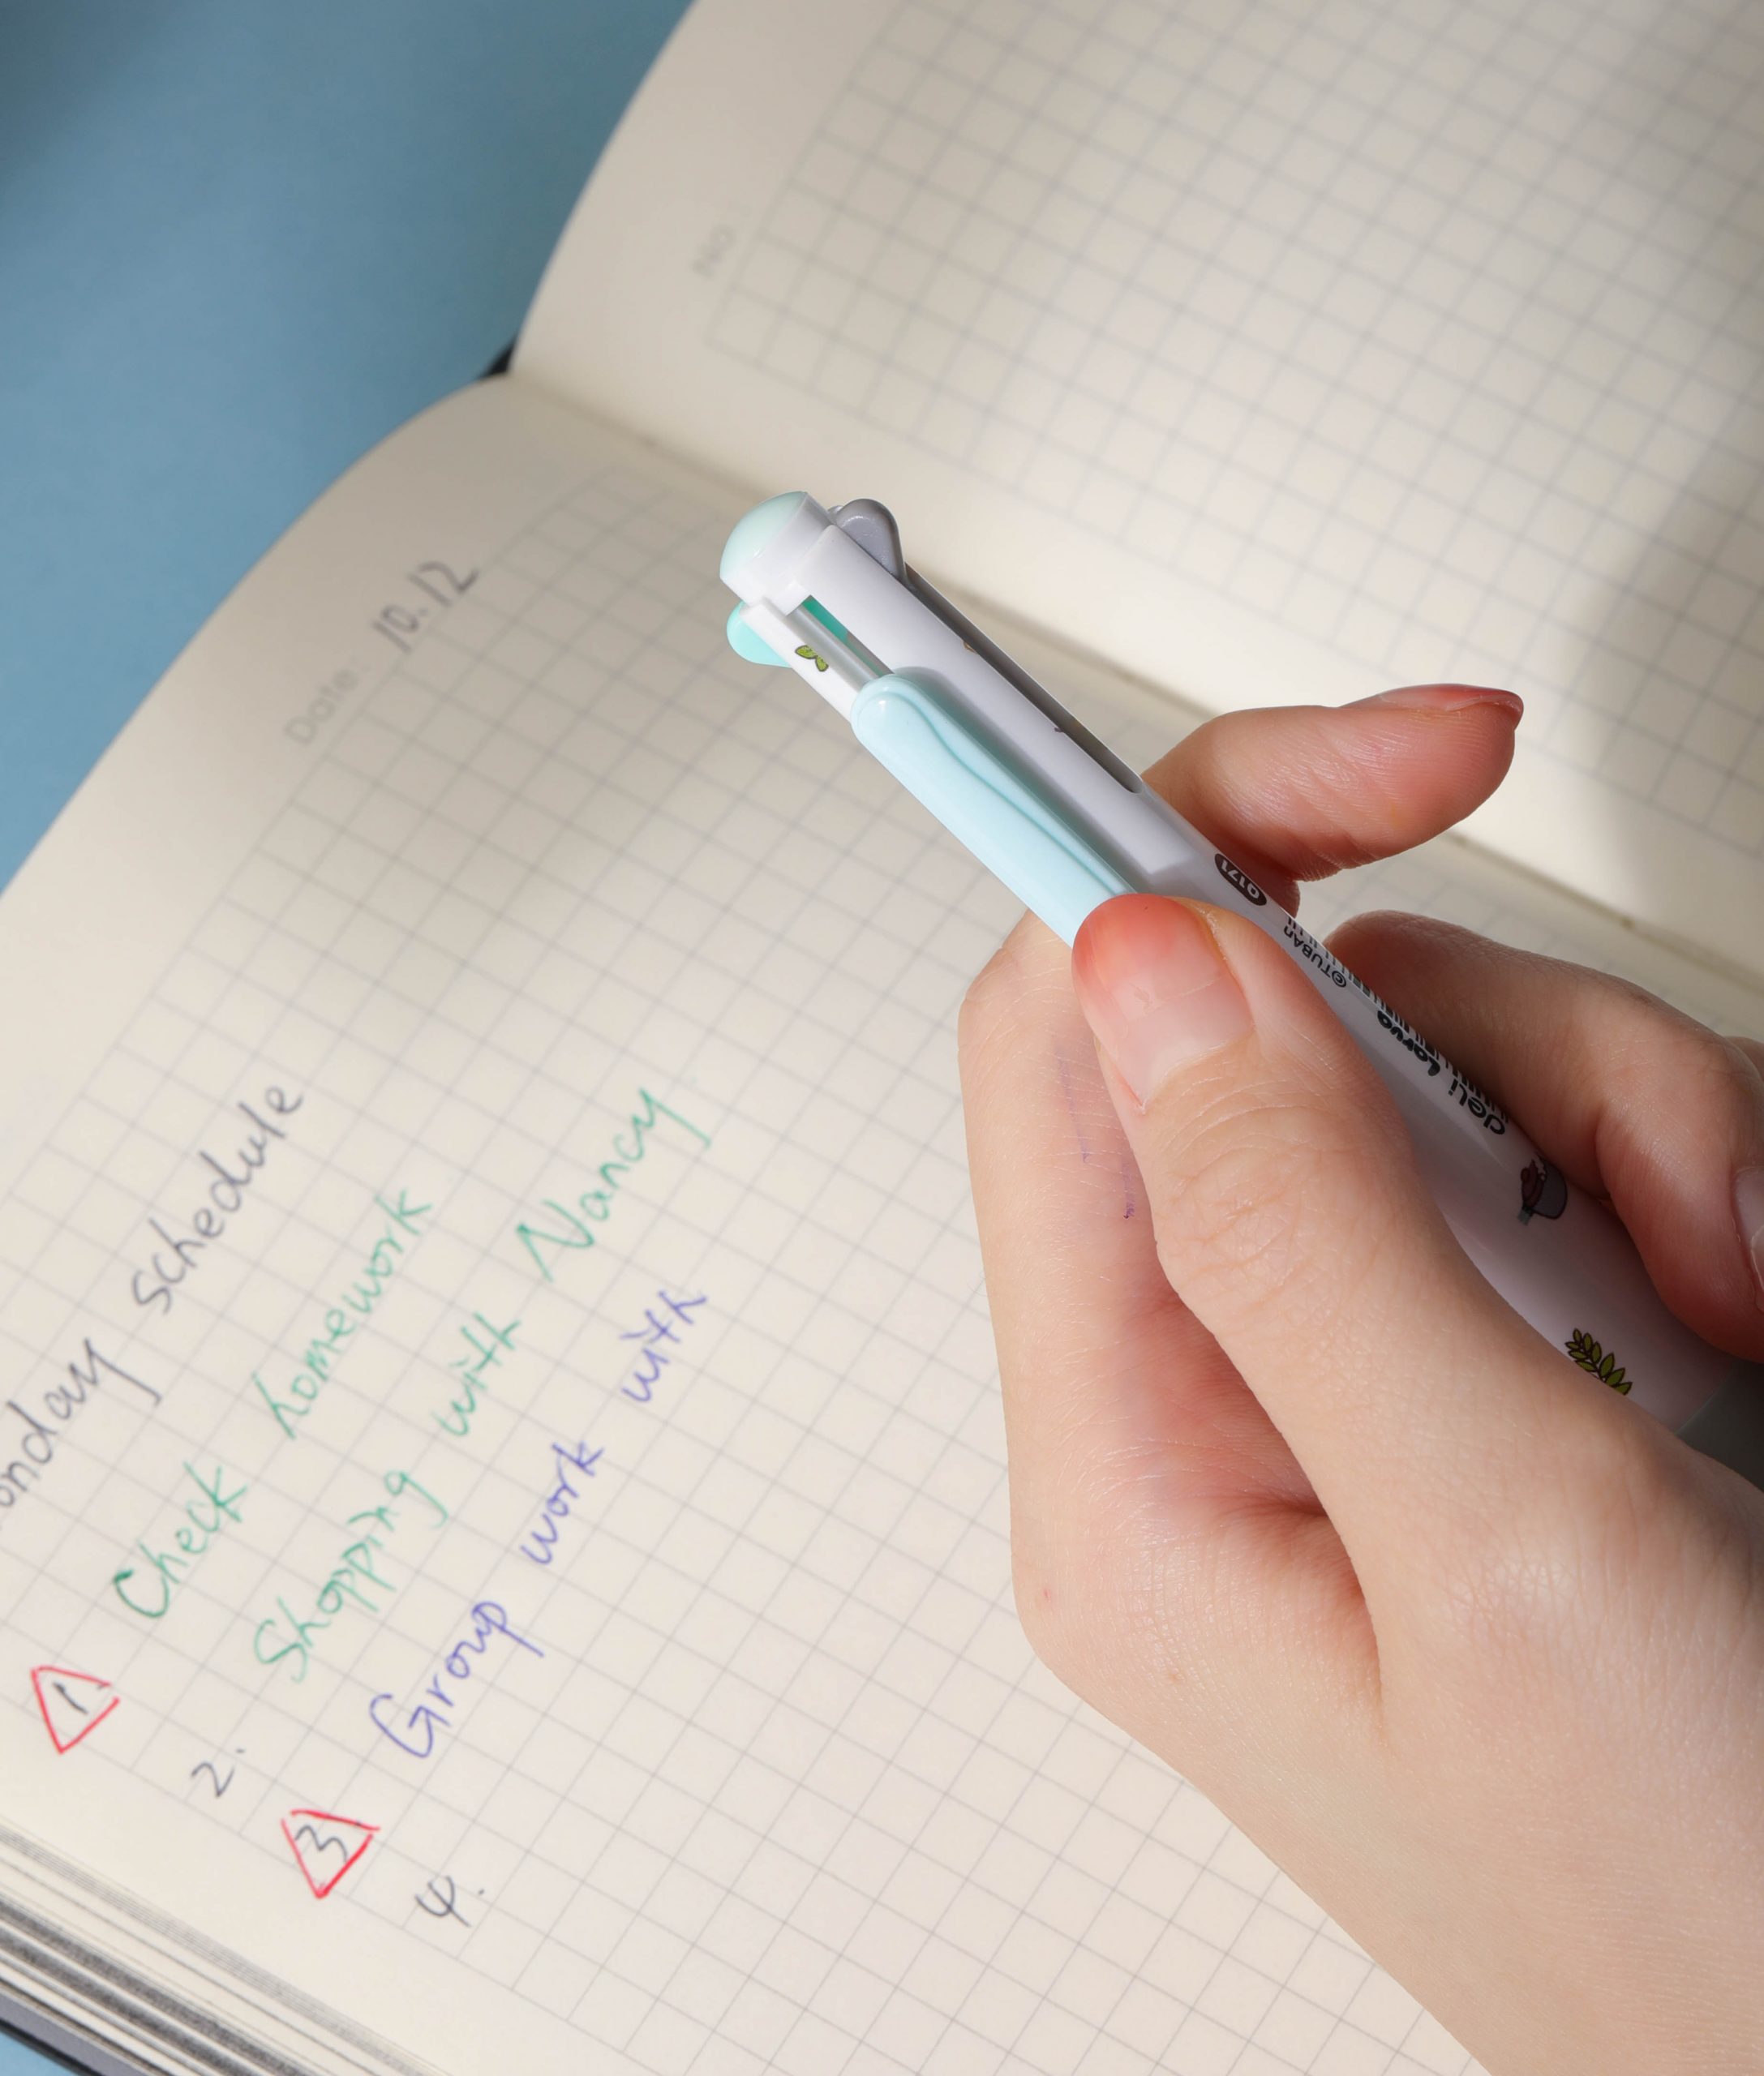 No
Date: 10.12
onday schedule
1. Check homework
2. Shopping with Nancy
3. Group work with
4.
0171
©TUBAn
deli Larva